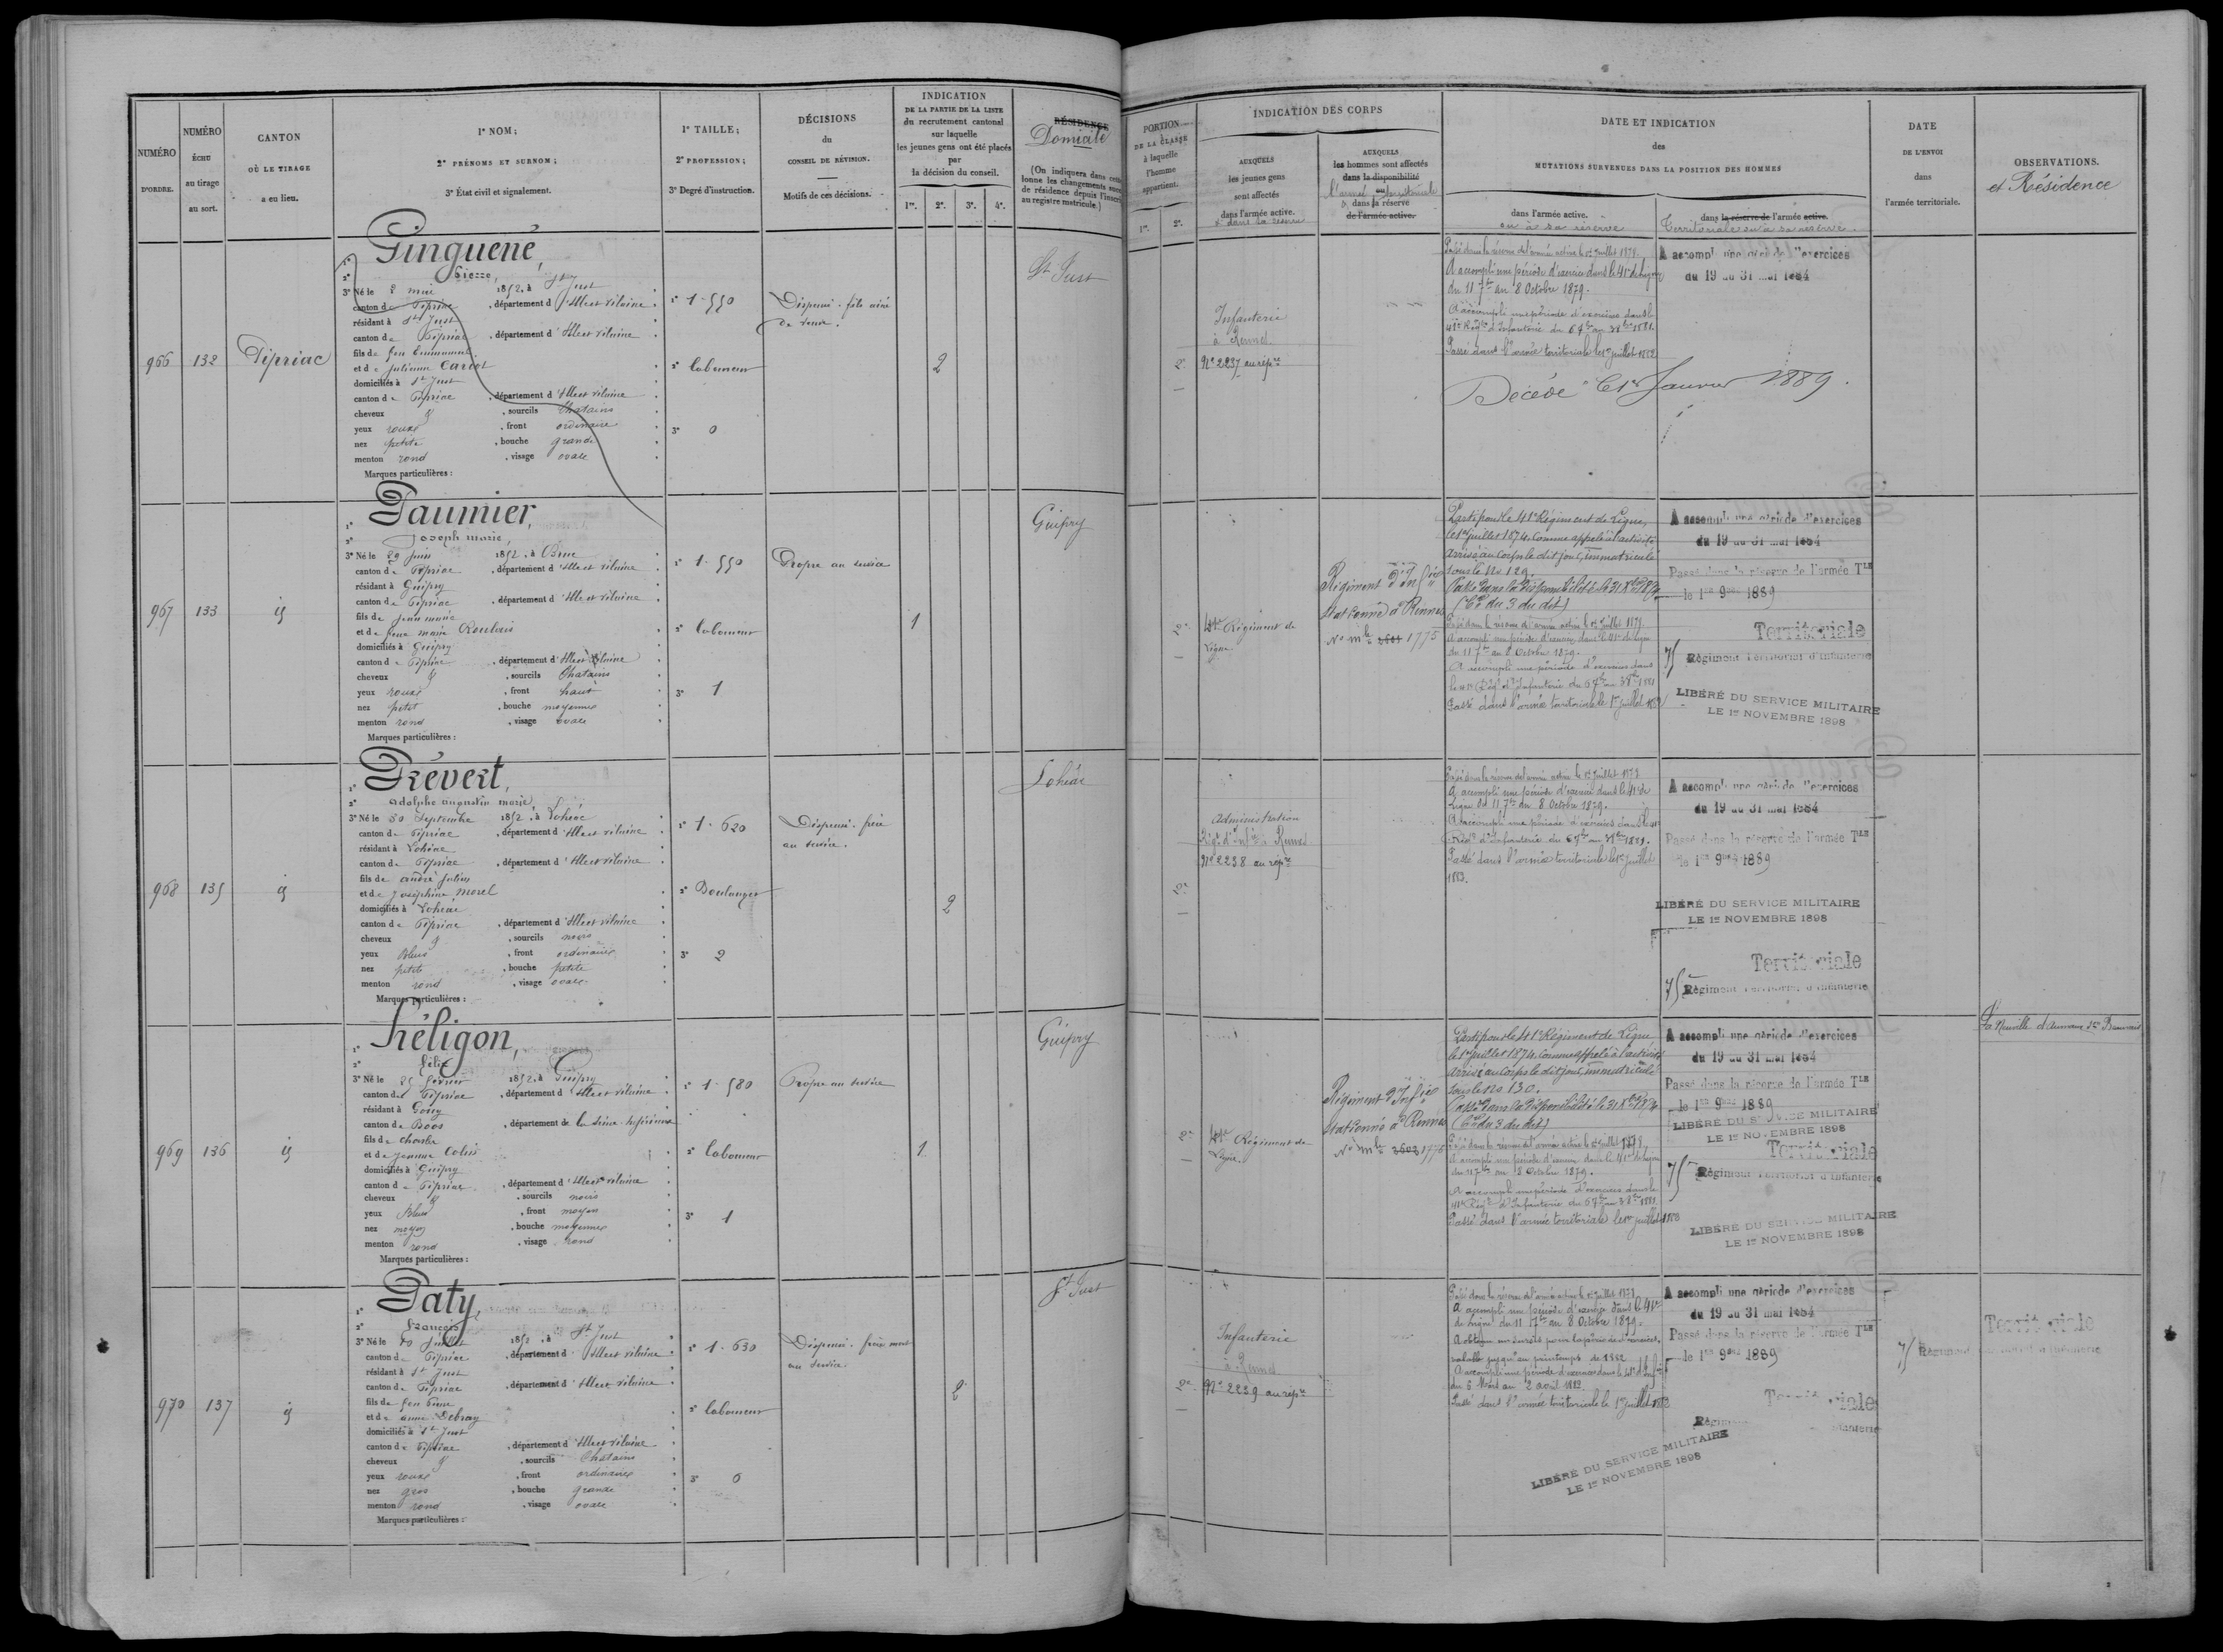 NUMÉRO D'ORDRE.
NUMÉRO ÉCHU au tirage au sort.
CANTON OÙ LE TIRAGE a eu lieu.
1° NOM;
2° PRÉNOMS ET SURNOM;
3° État civil et signalement.
1° TAILLE;
2° PROFESSION;
3° Degré d'instruction.
DÉCISIONS du CONSEIL DE RÉVISION.
Motifs de ces décisions.
INDICATION
DE LA PARTIE DE LA LISTE
du recrutement cantonal
sur laquelle
les jeunes gens ont été placés
par
la décision du conseil.
1re. 2e. 3e. 4e.
RÉSIDENCE
Domicile
(On indiquera dans cette
lonne les changements
de résidence depuis l'inscri
au registre matricule.)
PORTION DE LA CLASSE à laquelle l'homme appartient.
1re. 2e.
INDICATION DES CORPS
AUXQUELS les jeunes gens sont affectés dans l'armée active.
et dans sa réserve
AUXQUELS les hommes sont affectés dans la disponibilité ou dans la réserve de l'armée active.
l'armée territoriale
DATE ET INDICATION
des
MUTATIONS SURVENUES DANS LA POSITION DES HOMMES
dans l'armée active.
ou à sa réserve
dans la réserve de l'armée active.
Territoriale ou à sa réserve
DATE DE L'ENVOI dans l'armée territoriale.
OBSERVATIONS.
et Résidence
966
132
Pipriac
1° Ginguené,
2° Pierre,
3° Né le 2 mai 1852, à St Just
canton de Pipriac, département d'Ille et Vilaine
résidant à St Just
canton de Pipriac, département d'Ille et Vilaine
fils de feu
et de Julienne
domiciliés à St Just
canton de Pipriac, département d'Ille et Vilaine
cheveux & sourcils Chatains
yeux roux, front ordinaire
nez petit, bouche grande
menton rond, visage ovale
Marques particulières :
1° 1.550
2° laboureur
3° 0
Dispensé. fils aîné
de veuve.
2
St Just
2e
Infanterie
à Rennes
N° 2237 au répre
Passé dans la réserve de l'armée active le 1er Juillet 1879.
A accompli une période d'exercices dans le 41e de ligne
du 11 7bre au 8 Octobre 1879.
A accompli une période d'exercices dans le
41e Régt d'Infanterie du
Passé dans l'armée territoriale le 1er juillet 1882
Décédé le 1er Janvier 1889.
A accompli une période d'exercices
du 19 au 31 mai 1884
967
133
id
1° Paumier,
2° Joseph marie,
3° Né le 29 Juin 1852, à
canton de Pipriac, département d'Ille et Vilaine
résidant à Guipry
canton de Pipriac, département d'Ille et Vilaine
fils de Jean marie
et de feue marie Roulais
domiciliés à Guipry
canton de Pipriac, département d'Ille et Vilaine
cheveux & sourcils Chatains
yeux roux, front haut
nez petit, bouche moyenne
menton rond, visage ovale
Marques particulières :
1° 1.550
2° laboureur
3° 1
Propre au service
1
Guipry
2e
41e Régiment de
Ligne
Régiment d'Infie
stationné à Rennes
N° mle 1775
Parti pour le 41e Régiment de Ligne,
le 1er juillet 1874, comme appelé à l'activité
arrivé au corps le dit jour, immatriculé
sous le No 129.
Passé dans la disponibilité le 31
(Cre du 3 du dit)
Passé dans la réserve de l'armée active le 1er Juillet 1879.
A accompli une période d'exercices dans le 41e de ligne
du 11 7bre au 8 Octobre 1879.
A accompli une période d'exercices dans
le 41e Régt d'Infanterie du
Passé dans l'armée territoriale le 1er juillet
A accompli une période d'exercices
du 19 au 31 mai 1884
Passé dans la réserve de l'armée Tle
le 1er 9bre 1889
Territoriale
75 Régiment Territorial d'infanterie
LIBÉRÉ DU SERVICE MILITAIRE
LE 1er NOVEMBRE 1898
968
135
id
1° Prévert,
2° Adolphe augustin marie,
3° Né le 30 Septembre 1852, à Lohéac
canton de Pipriac, département d'Ille et Vilaine
résidant à Lohéac
canton de Pipriac, département d'Ille et Vilaine
fils de andré Julien
et de Joséphine Morel
domiciliés à Lohéac
canton de Pipriac, département d'Ille et Vilaine
cheveux & sourcils noirs
yeux Bleus, front ordinaire
nez petit, bouche petite
menton rond, visage ovale
Marques particulières :
1° 1.620
2° Boulanger
3° 2
Dispensé. frère
au service.
2
Lohéac
2e
Administration
Régt d'Infie à Rennes
N° 2238 au répre
Passé dans la réserve de l'armée active le 1er Juillet 1879
A accompli une période d'exercices dans le 41e de
Ligne du 11 7bre au 8 Octobre 1879.
A accompli une période d'exercices dans le 41e
Régt d'Infanterie du
Passé dans l'armée territoriale le 1er juillet
1883.
A accompli une période d'exercices
du 19 au 31 mai 1884
Passé dans la réserve de l'armée Tle
le 1er 9bre 1889
LIBÉRÉ DU SERVICE MILITAIRE
LE 1er NOVEMBRE 1898
Territoriale
75 Régiment Territorial d'infanterie
969
136
id
1° Héligon,
2° félix
3° Né le 25 février 1852, à Guipry
canton de Pipriac, département d'Ille et Vilaine
résidant à
canton de Boos, département de la Seine-Inférieure
fils de Charles
et de Jeanne Colin
domiciliés à Guipry
canton de Pipriac, département d'Ille et Vilaine
cheveux & sourcils noirs
yeux Bleus, front moyen
nez moyen, bouche moyenne
menton rond, visage rond
Marques particulières :
1° 1.580
2° laboureur
3° 1
Propre au service
1
Guipry
2e
41e Régiment de
Ligne
Régiment d'Infie
stationné à Rennes
N° mle 3603 1776
Parti pour le 41e Régiment de Ligne
le 1er juillet 1874, comme appelé à l'activité
arrivé au corps le dit jour, immatriculé
sous le No 130.
Passé dans la disponibilité le 31
(Cre du 3 du dit)
Passé dans la réserve de l'armée active le 1er Juillet 1879.
A accompli une période d'exercices dans le 41e de ligne
du 11 7bre au 8 Octobre 1879.
A accompli une période d'exercices dans le
41e Régt d'Infanterie du
Passé dans l'armée territoriale le 1er juillet
A accompli une période d'exercices
du 19 au 31 mai 1884
Passé dans la réserve de l'armée Tle
le 1er 9bre 1889
LIBÉRÉ DU SERVICE MILITAIRE
LE 1er NOVEMBRE 1898
Territoriale
75 Régiment Territorial d'infanterie
LIBÉRÉ DU SERVICE MILITAIRE
LE 1er NOVEMBRE 1898
La Neuville
970
137
id
1° Daty,
2° François
3° Né le 10 Juillet 1852, à St Just
canton de Pipriac, département d'Ille et Vilaine
résidant à St Just
canton de Pipriac, département d'Ille et Vilaine
fils de feu Pierre
et de anne Debray
domiciliés à St Just
canton de Pipriac, département d'Ille et Vilaine
cheveux & sourcils Chatains
yeux roux, front ordinaire
nez gros, bouche grande
menton rond, visage ovale
Marques particulières :
1° 1.630
2° laboureur
3° 0
Dispensé. frère mort
au service.
2
St Just
2e
Infanterie
à Rennes
N° 2239 au répre
Passé dans la réserve de l'armée active le 1er juillet 1879
A accompli une période d'exercices dans le 41e
de Ligne du 11 7bre au 8 Octobre 1879.
A obtenu un sursis pour la période d'exercices,
valable jusqu'au printemps de 1882
A accompli une période d'exercices dans le 41e d'Infie
du 6 Mars au 2 avril 1882.
Passé dans l'armée territoriale le 1er juillet
A accompli une période d'exercices
du 19 au 31 mai 1884
Passé dans la réserve de l'armée Tle
le 1er 9bre 1889
Territoriale
Régiment infanterie
LIBÉRÉ DU SERVICE MILITAIRE
LE 1er NOVEMBRE 1898
Territoriale
75 Régiment Territorial d'infanterie